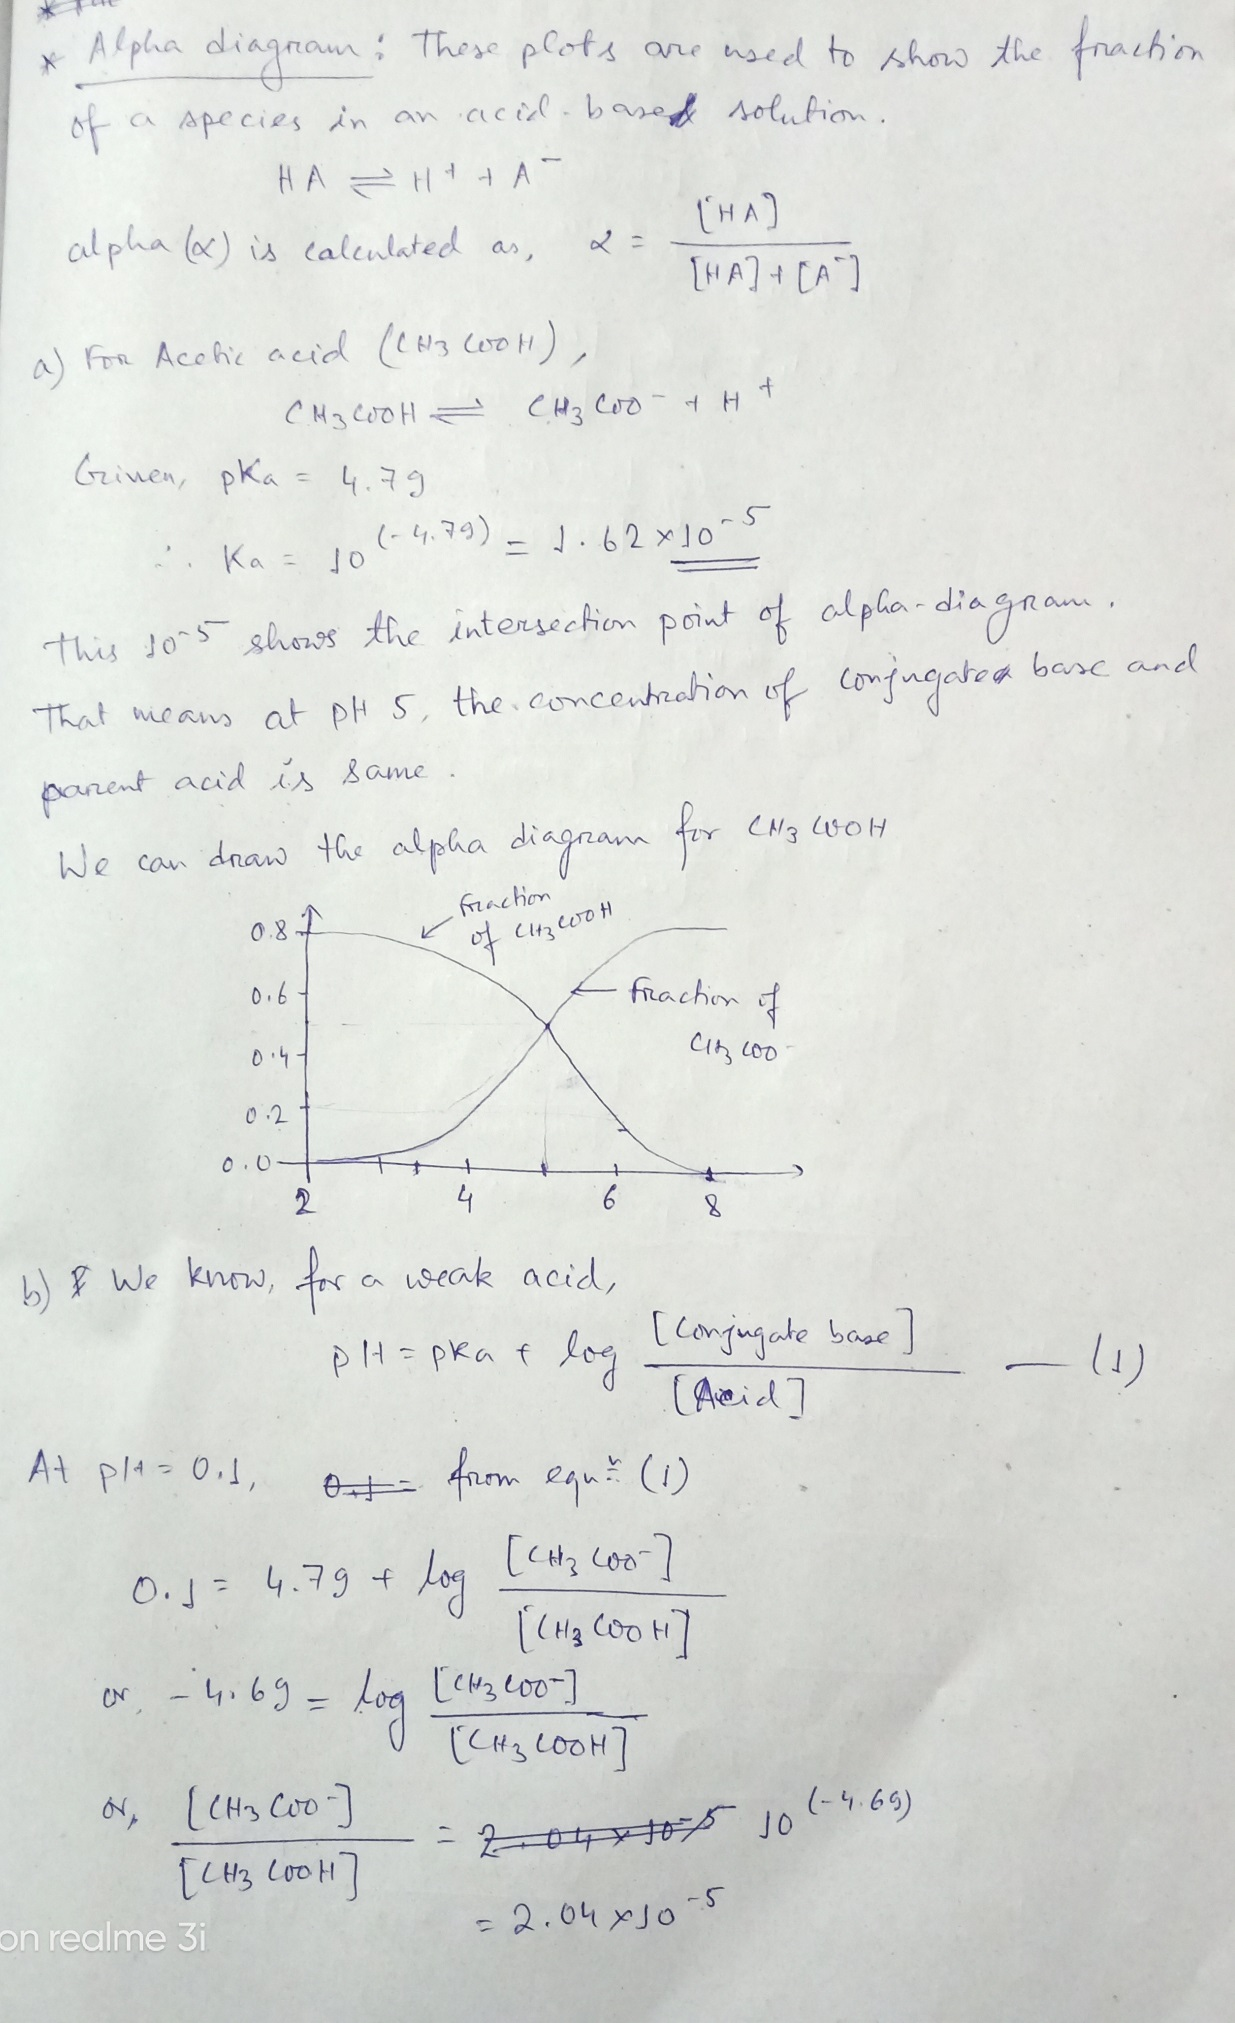 * Alpha diagram: These plots are used to show the fraction
of a species in an acid-base solution.
HA ⇌ H+ + A−
alpha (α) is calculated as, α = [HA] / [HA] + [A−]
a) For Acetic acid (CH3COOH),
CH3COOH ⇌ CH3COO− + H+
Given, pKa = 4.79
∴ Ka = 10^(-4.79) = 1.62 × 10^-5
This 10^-5 shows the intersection point of alpha-diagram.
That means at pH 5, the concentration of conjugate base and
parent acid is same.
We can draw the alpha diagram for CH3COOH
Fraction
of CH3COOH
0.8
0.6
Fraction of
CH3COO−
0.4
0.2
0.0
2 4 6 8
b) We know, for a weak acid,
pH = pKa + log [Conjugate base] / [Acid] — (1)
At pH = 0.1, 0.1 = from equn (1)
0.1 = 4.79 + log [CH3COO−] / [CH3COOH]
or, -4.69 = log [CH3COO−] / [CH3COOH]
or, [CH3COO−] / [CH3COOH] = 2.04 × 10^-5 10^(-4.69)
= 2.04 × 10^-5
on realme 3i